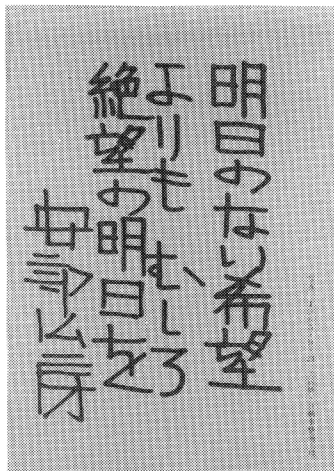 明日のない希望
よりもむしろ
絶望の明日を
安部公房